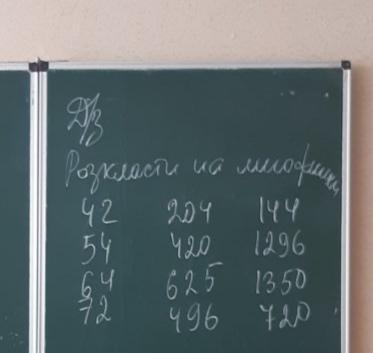 Д/З
Розкласти на множники
42 204 144
54 420 1296
64 625 1350
72 496 720